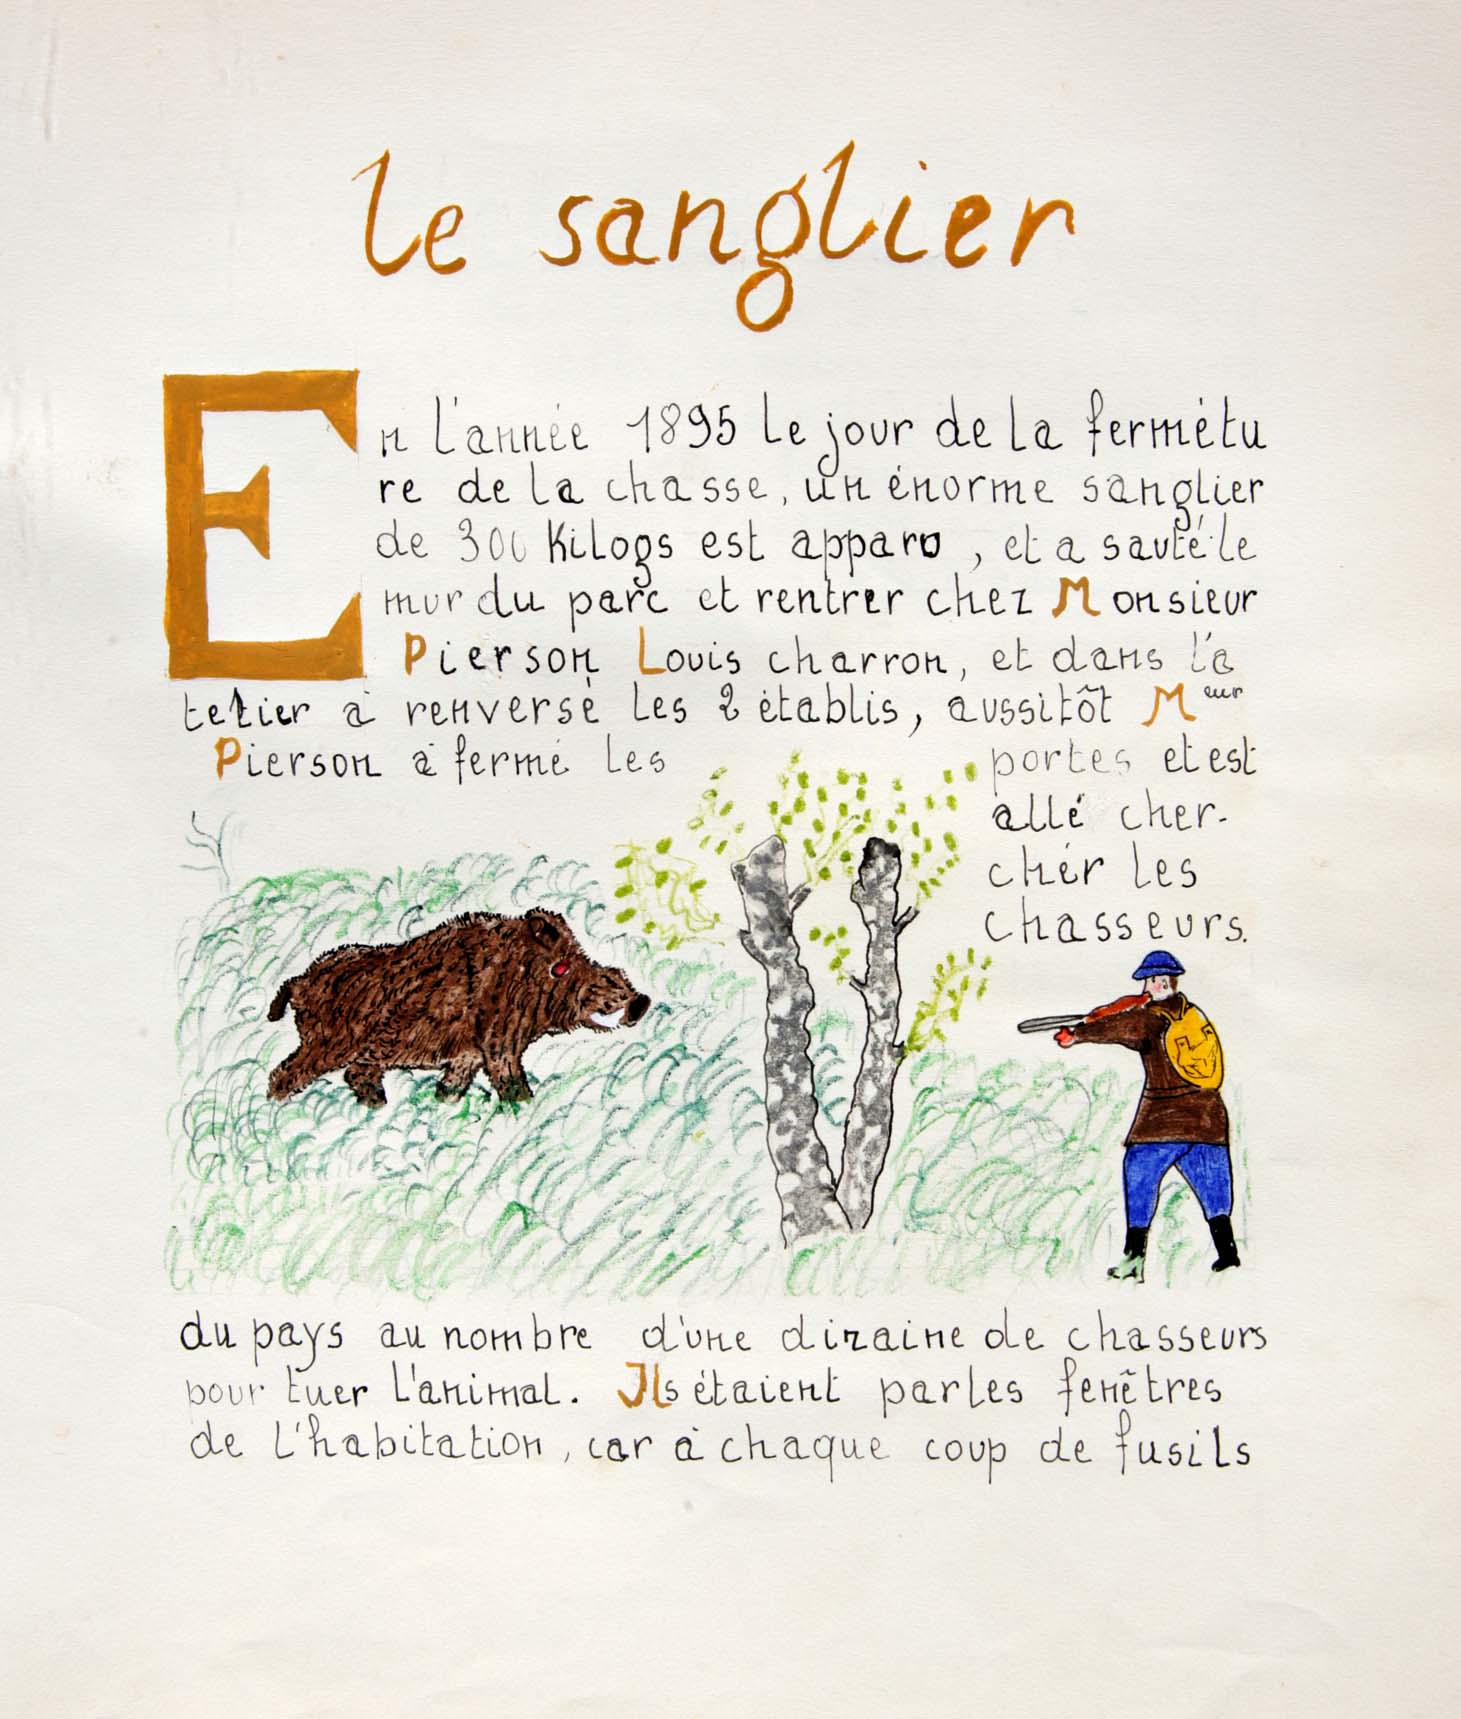 le sanglier
En l'année 1895 le jour de la fermétu
re de la chasse, un énorme sanglier
de 300 Kilogs est apparu, et a sauté le
mur du parc et rentrer chez Monsieur
Pierson Louis charron, et dans l'a
telier à renversé les 2 établis, aussitôt Meur
Pierson à fermé les portes et est
allé cher-
chér les
chasseurs.
du pays au nombre d'une dizaine de chasseurs
pour tuer l'animal. Ils étaient par les fenêtres
de l'habitation, car à chaque coup de fusils